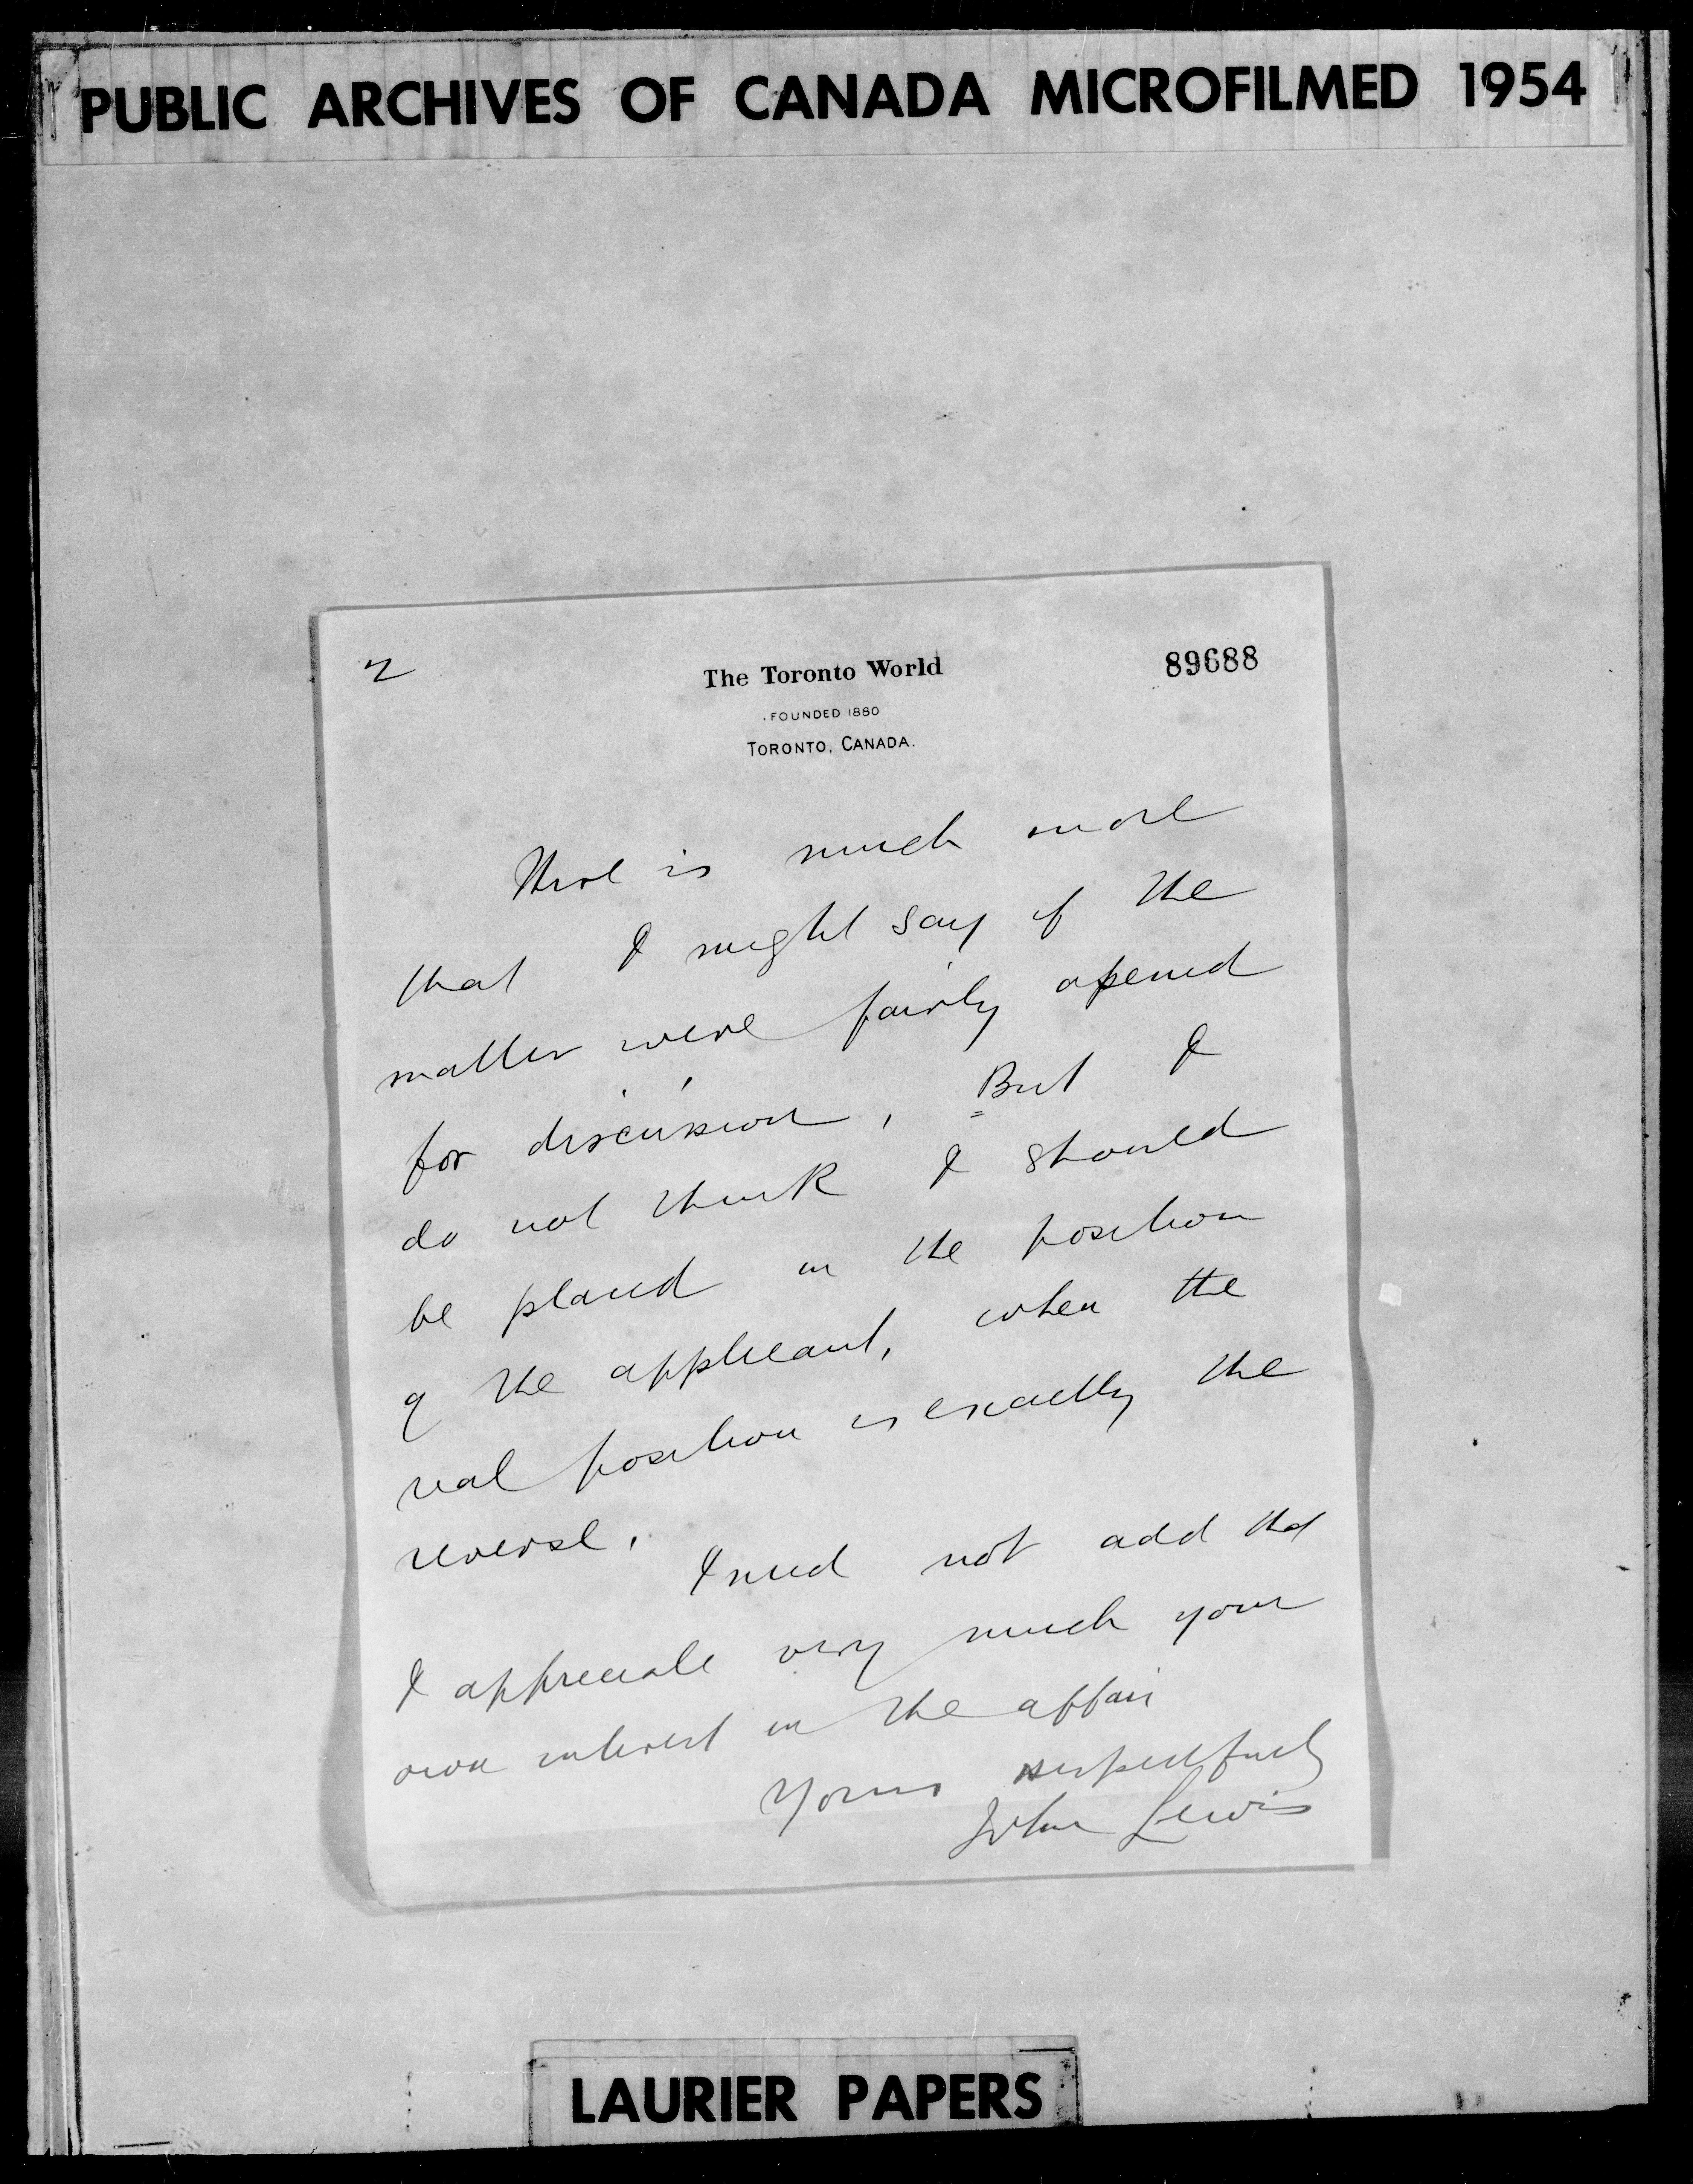 PUBLIC ARCHIVES OF CANADA MICROFILMED 1954
2
The Toronto World
89688
FOUNDED 1880
TORONTO, CANADA.
There is much more
that I might say if the
matter were fairly opened
for discussion. But I
do not think I should
be placed in the position
of the applicant, when the
real position is exactly the
reverse.
I need not add that
I appreciate very much your
own interest in the affair
Yours respectfully
John Lewis
LAURIER PAPERS